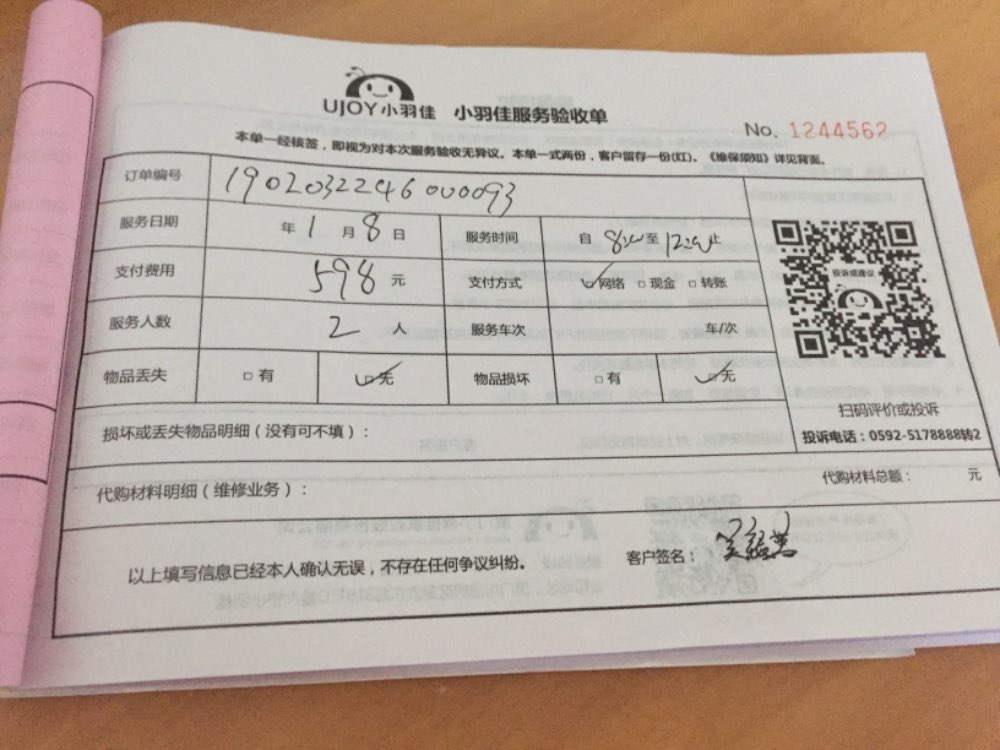 UJOY小羽佳 小羽佳服务验收单
No. 1244562
本单一经核签，即视为对本次服务验收无异议。本单一式两份，客户留存一份(红)。《维保须知》详见背面。
订单编号 1902032246000093
服务日期 年1月8日 服务时间 自8:00至12:00止
支付费用 598元 支付方式 ☑网络 □现金 □转账
服务人数 2人 服务车次 车/次
物品丢失 □有 ☑无 物品损坏 □有 ☑无
投诉或建议
扫码评价或投诉
投诉电话：0592-5178888转2
损坏或丢失物品明细（没有可不填）：
代购材料明细（维修业务）： 代购材料总额： 元
以上填写信息已经本人确认无误，不存在任何争议纠纷。 客户签名：